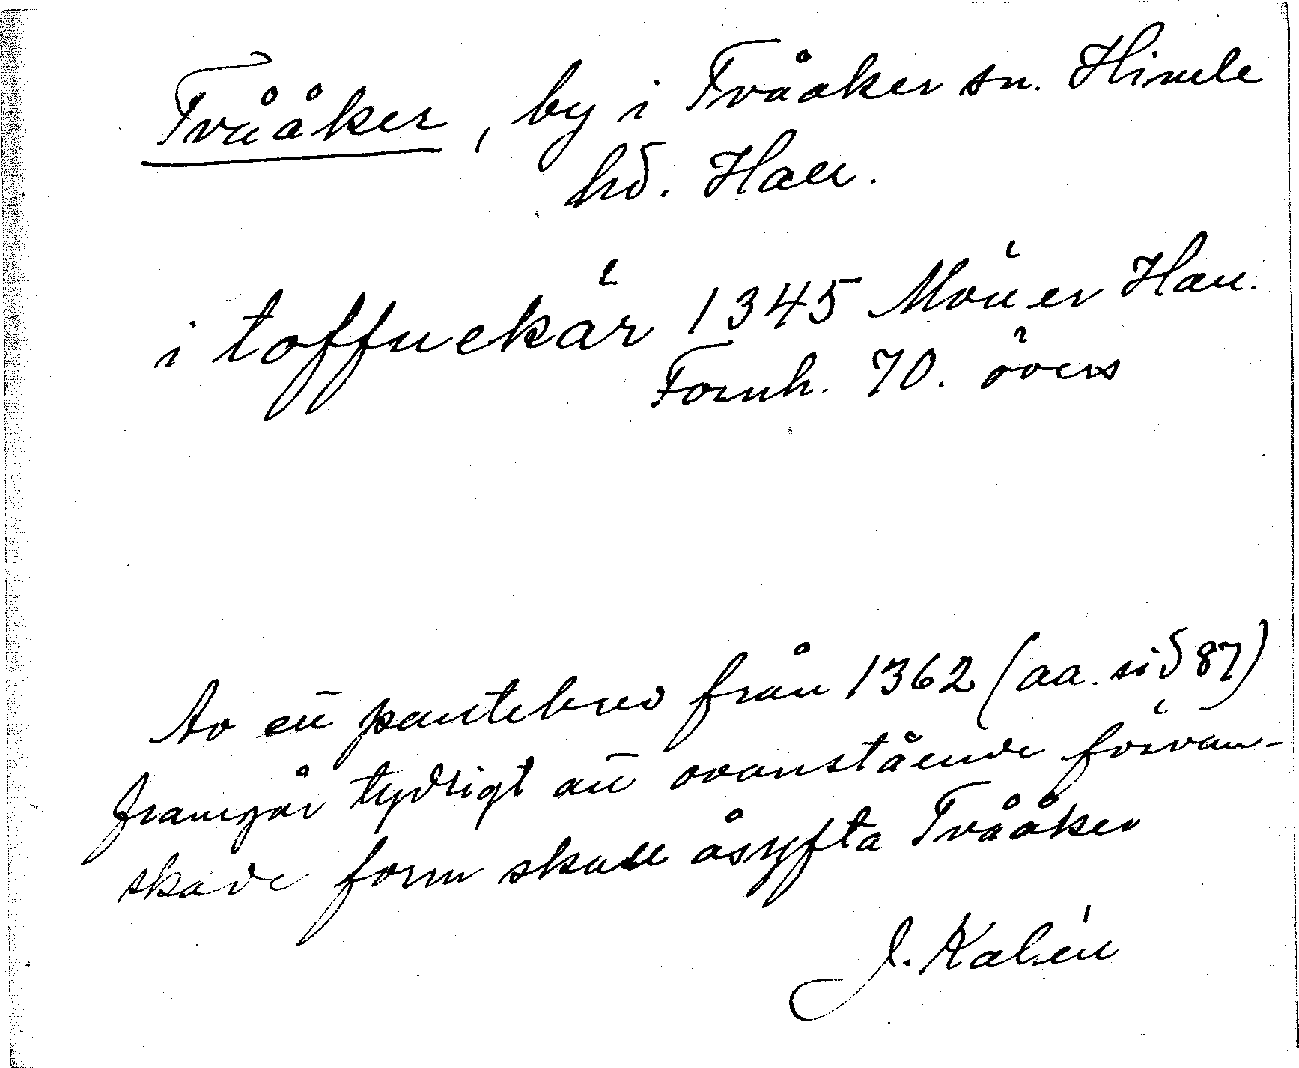 Tvååker, by i Tvååker sn. Himle
hd. Hall.
i toffuekär 1345 Möller Hall.
Fornh. 70. övers
Av ett pantebrev från 1362 (aa. sid 87)
framgår tydligt att ovanstående förvan-
skade form skall åsyfta Tvååker
J. Kalén